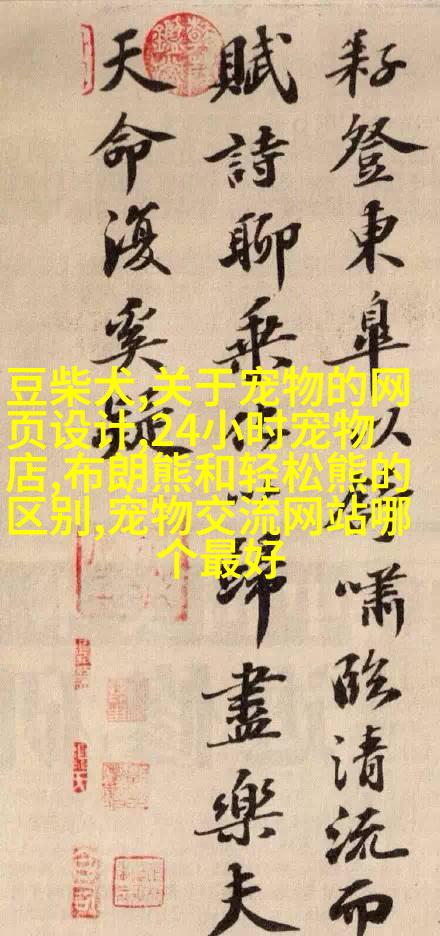 耔登東皐以舒嘯臨清流而
賦詩聊乗化以歸盡樂夫
天命復奚疑
豆柴犬,关于宠物的网
页设计,24小时宠物
店,布朗熊和轻松熊的
区别,宠物交流网站哪
个最好